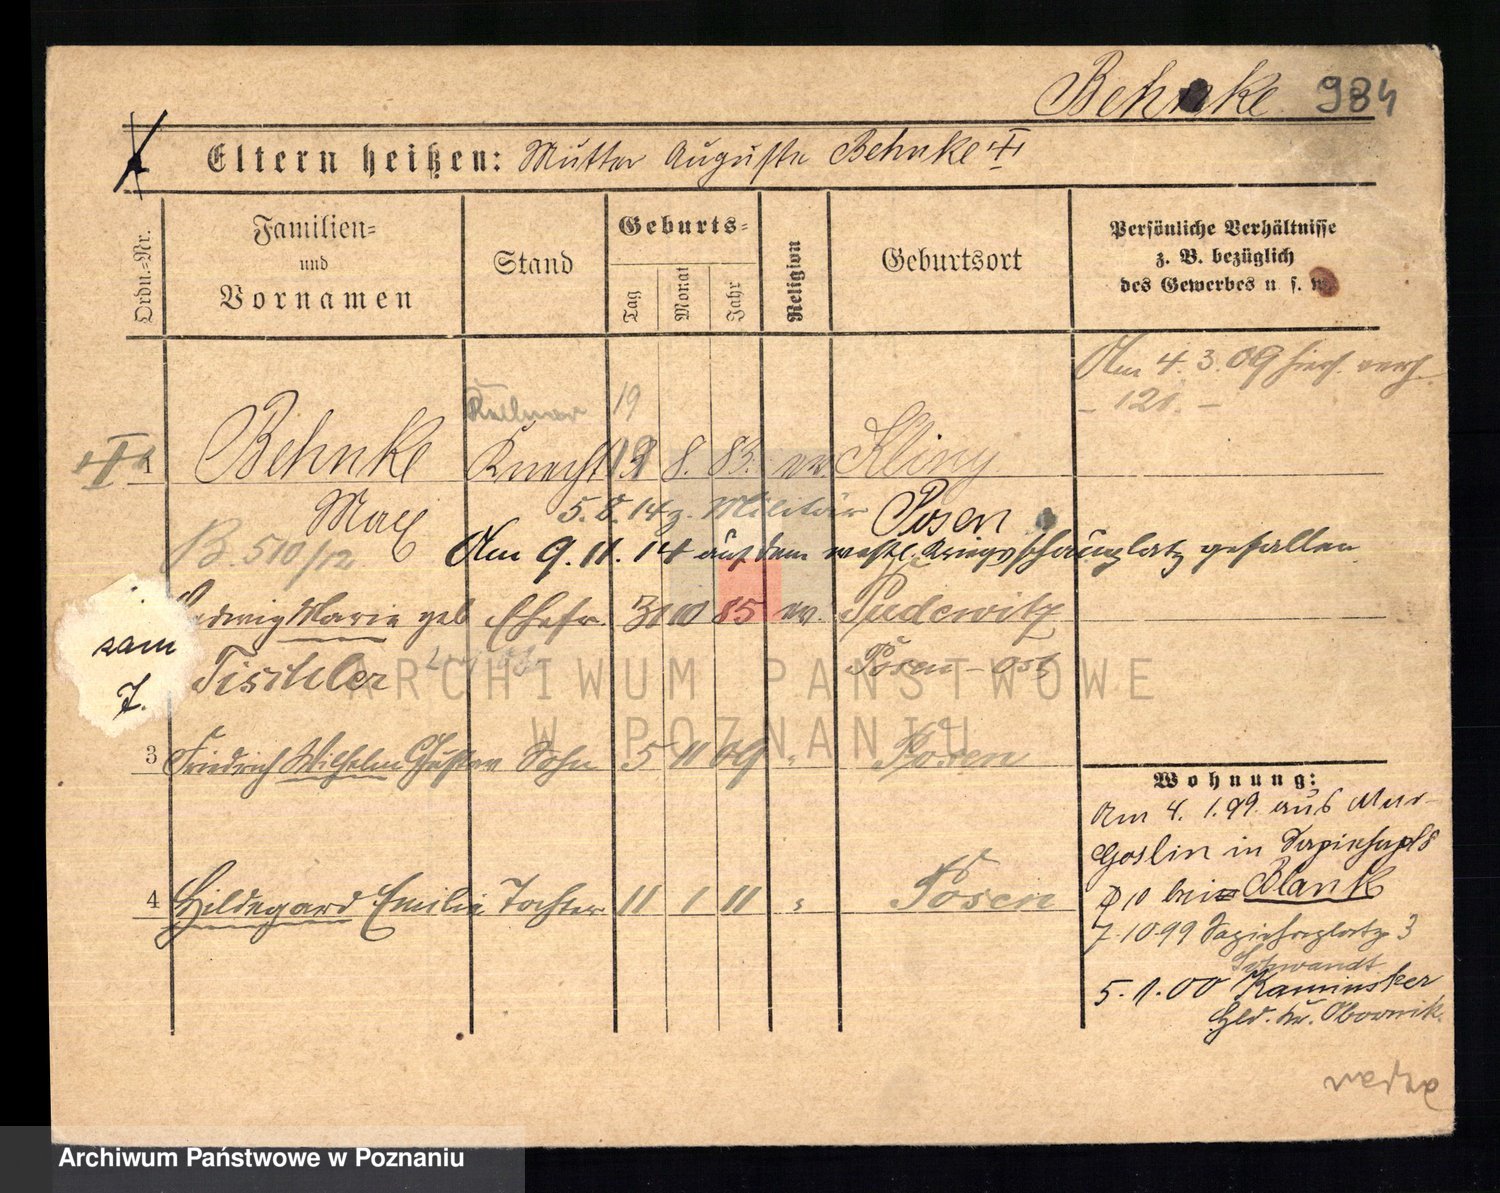 Behnke 984
Eltern heißen: Mutter Auguste Behnke
Ordn.-Nr.
Familien- und Vornamen
Stand
Geburts-
Tag Monat Jahr
Religion
Geburtsort
Persönliche Verhältnisse
z. B. bezüglich
des Gewerbes u. s. w.
Am 4. 3. 09 hier verh.
- 121. -
Kellner 19
1 Behnke Knecht 19 8. 83. ev. Kliny
Max 5. 8. 14 z. Militär Posen
B. 510/12 Am 9. 11. 14 auf dem westl. Kriegsschauplatz gefallen
Hedwig Marie geb Ehefr. 31 10 85 ev. Pudewitz
sam
Tischler Posen-Ost
7.
3 Friedrich Wilhelm Gustav Sohn 5 11 09 " Posen
4 Hildegard Emilie Tochter 11 1 11 " Posen
Wohnung:
Am 4. 1. 99. aus Mur-
Goslin in Sapiehapl 8
bei Blank
7. 10 99 Sapiehaplatz 3
Schwandt
5. 1. 00 Kaminsker
Hld. Kr. Obornik.
ARCHIWUM PAŃSTWOWE
W POZNANIU
Archiwum Państwowe w Poznaniu